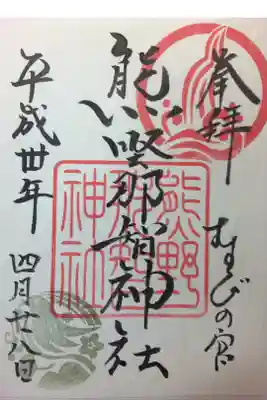 奉拝
むすびの宮
熊野那智神社
熊野
那智
神社
平成卅年
四月廿八日